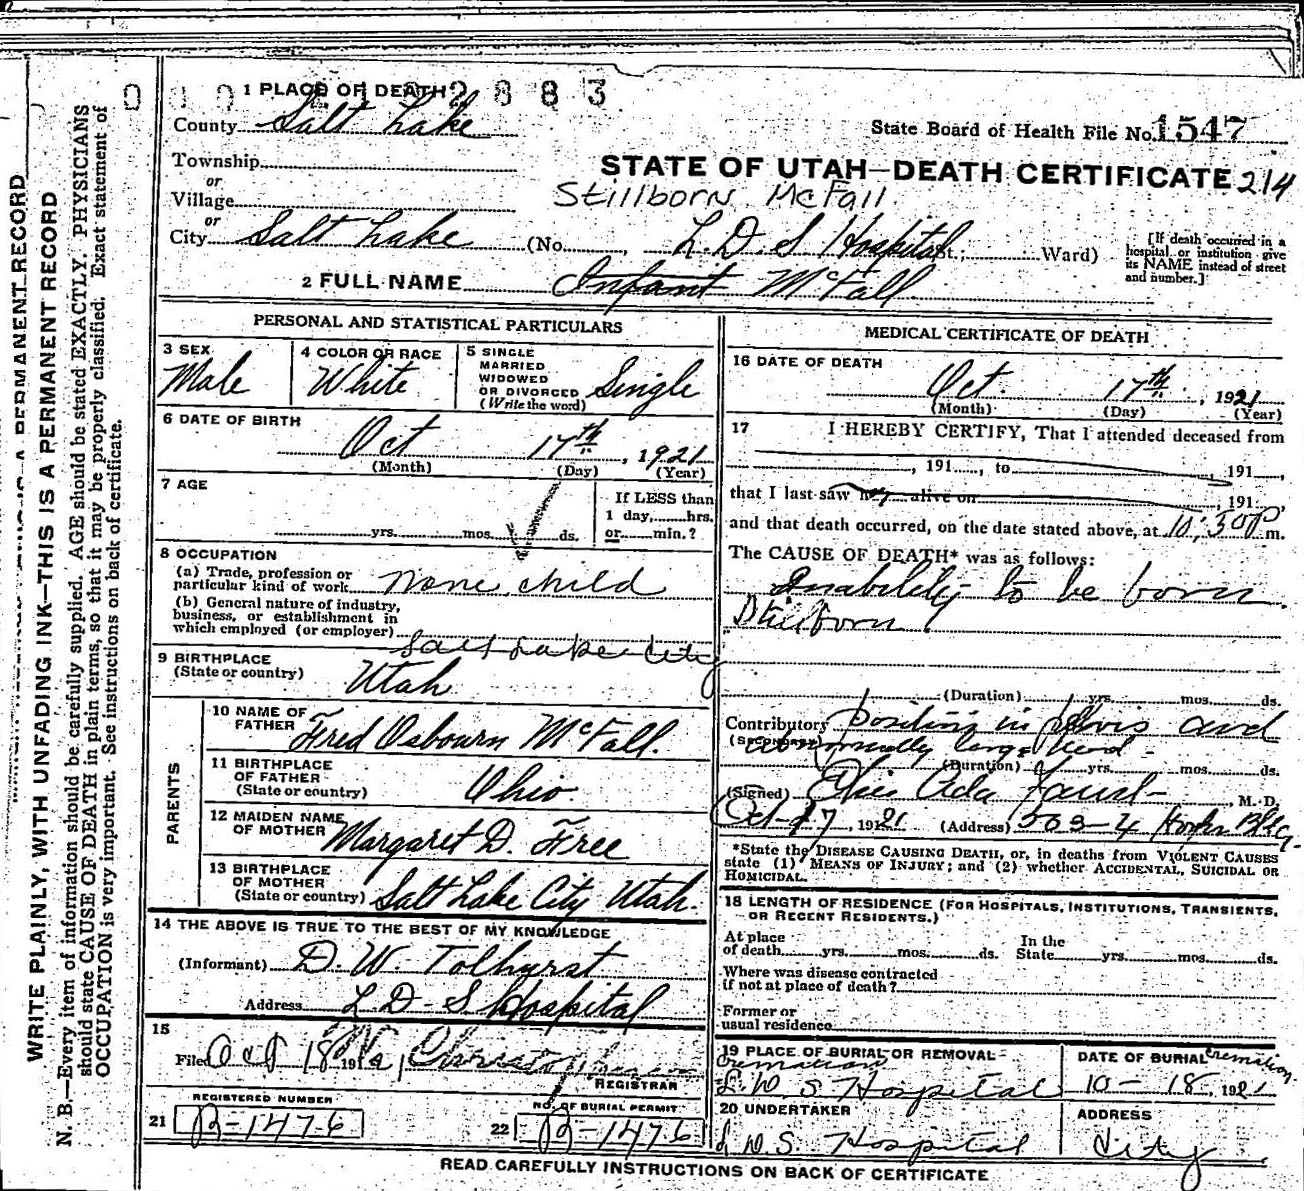 1 PLACE OF DEATH
2883
County Salt Lake
State Board of Health File No. 1547
Township
or
STATE OF UTAH—DEATH CERTIFICATE 214
Village
Stillborn McFall
or
City Salt Lake (No. L. D. S Hospital St.; Ward)
[If death occurred in a hospital or institution give its NAME instead of street and number.]
2 FULL NAME Infant McFall
PERSONAL AND STATISTICAL PARTICULARS
3 SEX Male
4 COLOR OR RACE White
5 SINGLE MARRIED WIDOWED OR DIVORCED (Write the word) Single
6 DATE OF BIRTH
Oct 17th, 1921
(Month) (Day) (Year)
7 AGE
yrs. mos. ds.
If LESS than 1 day, hrs. or min.?
8 OCCUPATION
(a) Trade, profession or particular kind of work None child
(b) General nature of industry, business, or establishment in which employed (or employer)
9 BIRTHPLACE (State or country) Salt Lake City Utah
PARENTS
10 NAME OF FATHER Fred Osbourn McFall.
11 BIRTHPLACE OF FATHER (State or country) Ohio.
12 MAIDEN NAME OF MOTHER Margaret D. Free
13 BIRTHPLACE OF MOTHER (State or country) Salt Lake City Utah.
14 THE ABOVE IS TRUE TO THE BEST OF MY KNOWLEDGE
(Informant) D. W. Tolhurst
Address L D - S Hospital
15
Filed Oct 18
REGISTRAR
REGISTERED NUMBER
21 B-1476
NO. OF BURIAL PERMIT
22 B-1476
MEDICAL CERTIFICATE OF DEATH
16 DATE OF DEATH
Oct. 17th, 1921
(Month) (Day) (Year)
17 I HEREBY CERTIFY, That I attended deceased from
, 191 , to , 191 ,
that I last saw h alive on , 191 ,
and that death occurred, on the date stated above, at 10:30 P m.
The CAUSE OF DEATH* was as follows:
Inability to be born.
Stillborn
(Duration) yrs. mos. ds.
Contributory position in pelvis and
(Secondary) abnormally large head -
(Duration) yrs. mos. ds.
(Signed) Ada , M. D.
Oct-17, 1921 (Address) 503-4
*State the DISEASE CAUSING DEATH, or, in deaths from VIOLENT CAUSES state (1) MEANS OF INJURY; and (2) whether ACCIDENTAL, SUICIDAL OR HOMICIDAL.
18 LENGTH OF RESIDENCE (FOR HOSPITALS, INSTITUTIONS, TRANSIENTS, OR RECENT RESIDENTS.)
At place of death yrs. mos. ds. In the State yrs. mos. ds.
Where was disease contracted if not at place of death?
Former or usual residence
19 PLACE OF BURIAL OR REMOVAL
Cremation
L. D S Hospital
DATE OF BURIAL Cremation
10-18, 1921
20 UNDERTAKER
L D S Hospital
ADDRESS
City
READ CAREFULLY INSTRUCTIONS ON BACK OF CERTIFICATE
WRITE PLAINLY, WITH UNFADING INK—THIS IS A PERMANENT RECORD
N. B.—Every item of information should be carefully supplied. AGE should be stated EXACTLY. PHYSICIANS
should state CAUSE OF DEATH in plain terms, so that it may be properly classified. Exact statement of
OCCUPATION is very important. See instructions on back of certificate.